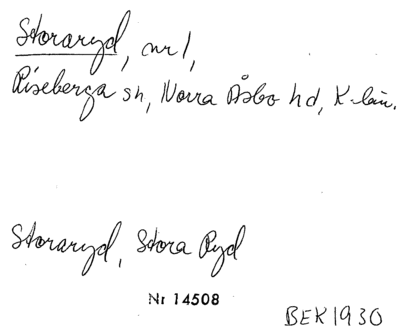 Storaryd, nr 1,
Riseberga sn, Norra Åsbo hd, K-län.
Storaryd, Stora Ryd
Nr 14508
BEK 1930